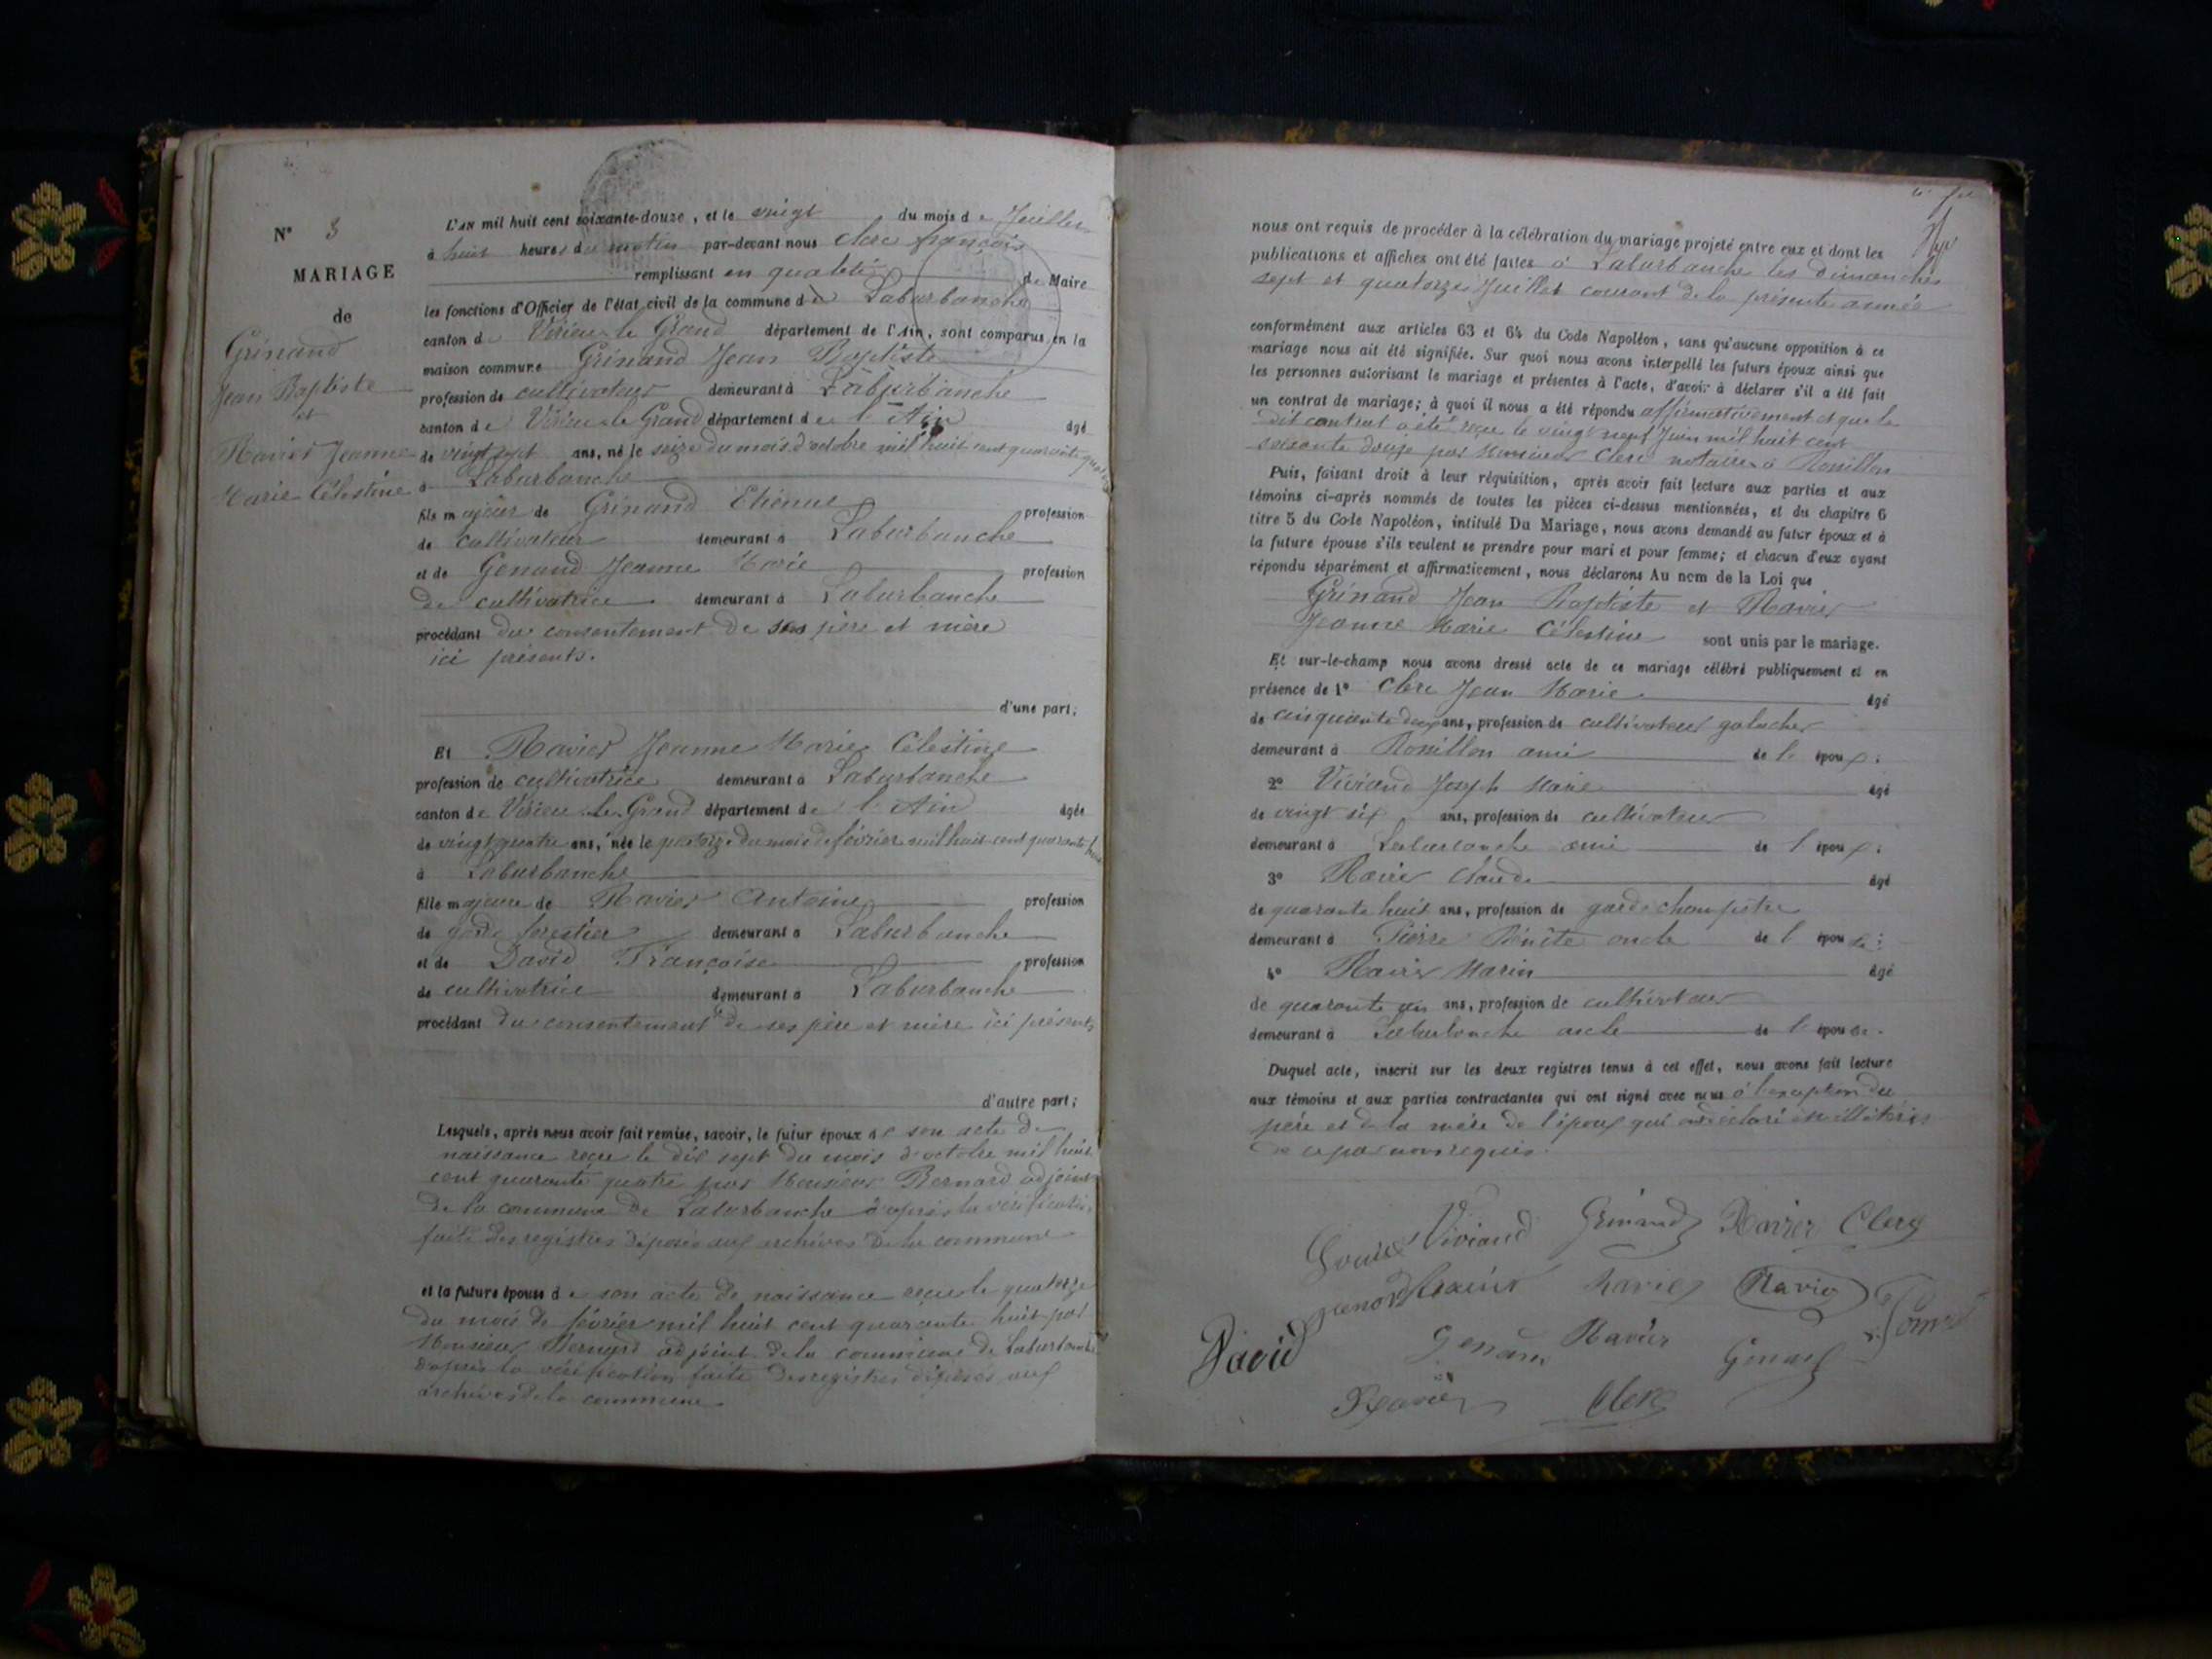 N° 3
MARIAGE
de
Grinand
Jean Baptiste
et
Ravier Jeanne
Marie Célestine
L'AN mil huit cent soixante-douze, et le vingt du mois de Juillet
à huit heures du matin par-devant nous Clerc françois
remplissant en qualité de Maire
les fonctions d'Officier de l'état civil de la commune de Laburbanche
canton de Virieu le Grand département de l'Ain, sont comparus en la
maison commune Grinand Jean Baptiste
profession de cultivateur demeurant à Laburbanche
canton de Virieu le Grand département de l'Ain âgé
de vingt sept ans, né le seize du mois d'octobre mil huit cent quarante quatre
à Laburbanche
fils majeur de Grinand Etienne profession
de cultivateur demeurant à Laburbanche
et de Genand Jeanne Marie profession
de cultivatrice demeurant à Laburbanche
procédant du consentement de ses père et mère
ici présents.
d'une part;
Et Ravier Jeanne Marie Célestine
profession de cultivatrice demeurant à Laburbanche
canton de Virieu le Grand département de l'Ain âgée
de vingt quatre ans, née le quatorze du mois de février mil huit cent quarante huit
à Laburbanche
fille majeure de Ravier Antoine profession
de garde forestier demeurant à Laburbanche
et de David Françoise profession
de cultivatrice demeurant à Laburbanche
procédant du consentement de ses père et mère ici présents
d'autre part;
Lesquels, après nous avoir fait remise, savoir, le futur époux de son acte de
naissance reçu le dix sept du mois d'octobre mil huit
cent quarante quatre par Monsieur Bernard adjoint
de la commune de Laburbanche d'après la vérification
faite des registres déposés aux archives de la commune
et la future épouse de son acte de naissance reçu le quatorze
du mois de février mil huit cent quarante huit par
Monsieur Bernard adjoint de la commune de Laburbanche
d'après la vérification faite des registres déposés aux
archives de la commune
nous ont requis de procéder à la célébration du mariage projeté entre eux et dont les
publications et affiches ont été faites à Laburbanche les dimanches
sept et quatorze Juillet courant de la présente année
conformément aux articles 63 et 64 du Code Napoléon, sans qu'aucune opposition à ce
mariage nous ait été signifiée. Sur quoi nous avons interpellé les futurs époux ainsi que
les personnes autorisant le mariage et présentes à l'acte, d'avoir à déclarer s'il a été fait
un contrat de mariage; à quoi il nous a été répondu affirmativement et que le
dit contrat a été reçu le vingt neuf Juin mil huit cent
soixante douze par Monsieur Clerc notaire à Rossillon
Puis, faisant droit à leur réquisition, après avoir fait lecture aux parties et aux
témoins ci-après nommés de toutes les pièces ci-dessus mentionnées, et du chapitre 6
titre 5 du Code Napoléon, intitulé Du Mariage, nous avons demandé au futur époux et à
la future épouse s'ils veulent se prendre pour mari et pour femme; et chacun d'eux ayant
répondu séparément et affirmativement, nous déclarons Au nom de la Loi que
Grinand Jean Baptiste et Ravier
Jeanne Marie Célestine sont unis par le mariage.
Et sur-le-champ nous avons dressé acte de ce mariage célébré publiquement et en
présence de 1° Clerc Jean Marie âgé
de cinquante deux ans, profession de cultivateur
demeurant à Rossillon ami de l'époux;
2° Viviand Joseph Marie âgé
de vingt six ans, profession de cultivateur
demeurant à Laburbanche ami de l'époux;
3° Ravier Claude âgé
de quarante huit ans, profession de garde champêtre
demeurant à Pierre oncle de l'épouse;
4° Ravier Marin âgé
de quarante un ans, profession de cultivateur
demeurant à Laburbanche oncle de l'épouse.
Duquel acte, inscrit sur les deux registres tenus à cet effet, nous avons fait lecture
aux témoins et aux parties contractantes qui ont signé avec nous à l'exception du
père et de la mère de l'époux qui ont déclaré être illitérés
de ce par nous requis.
Viviand Grinand Ravier Clerc
Ravier Ravier
David Genand Ravier
Ravier Clerc